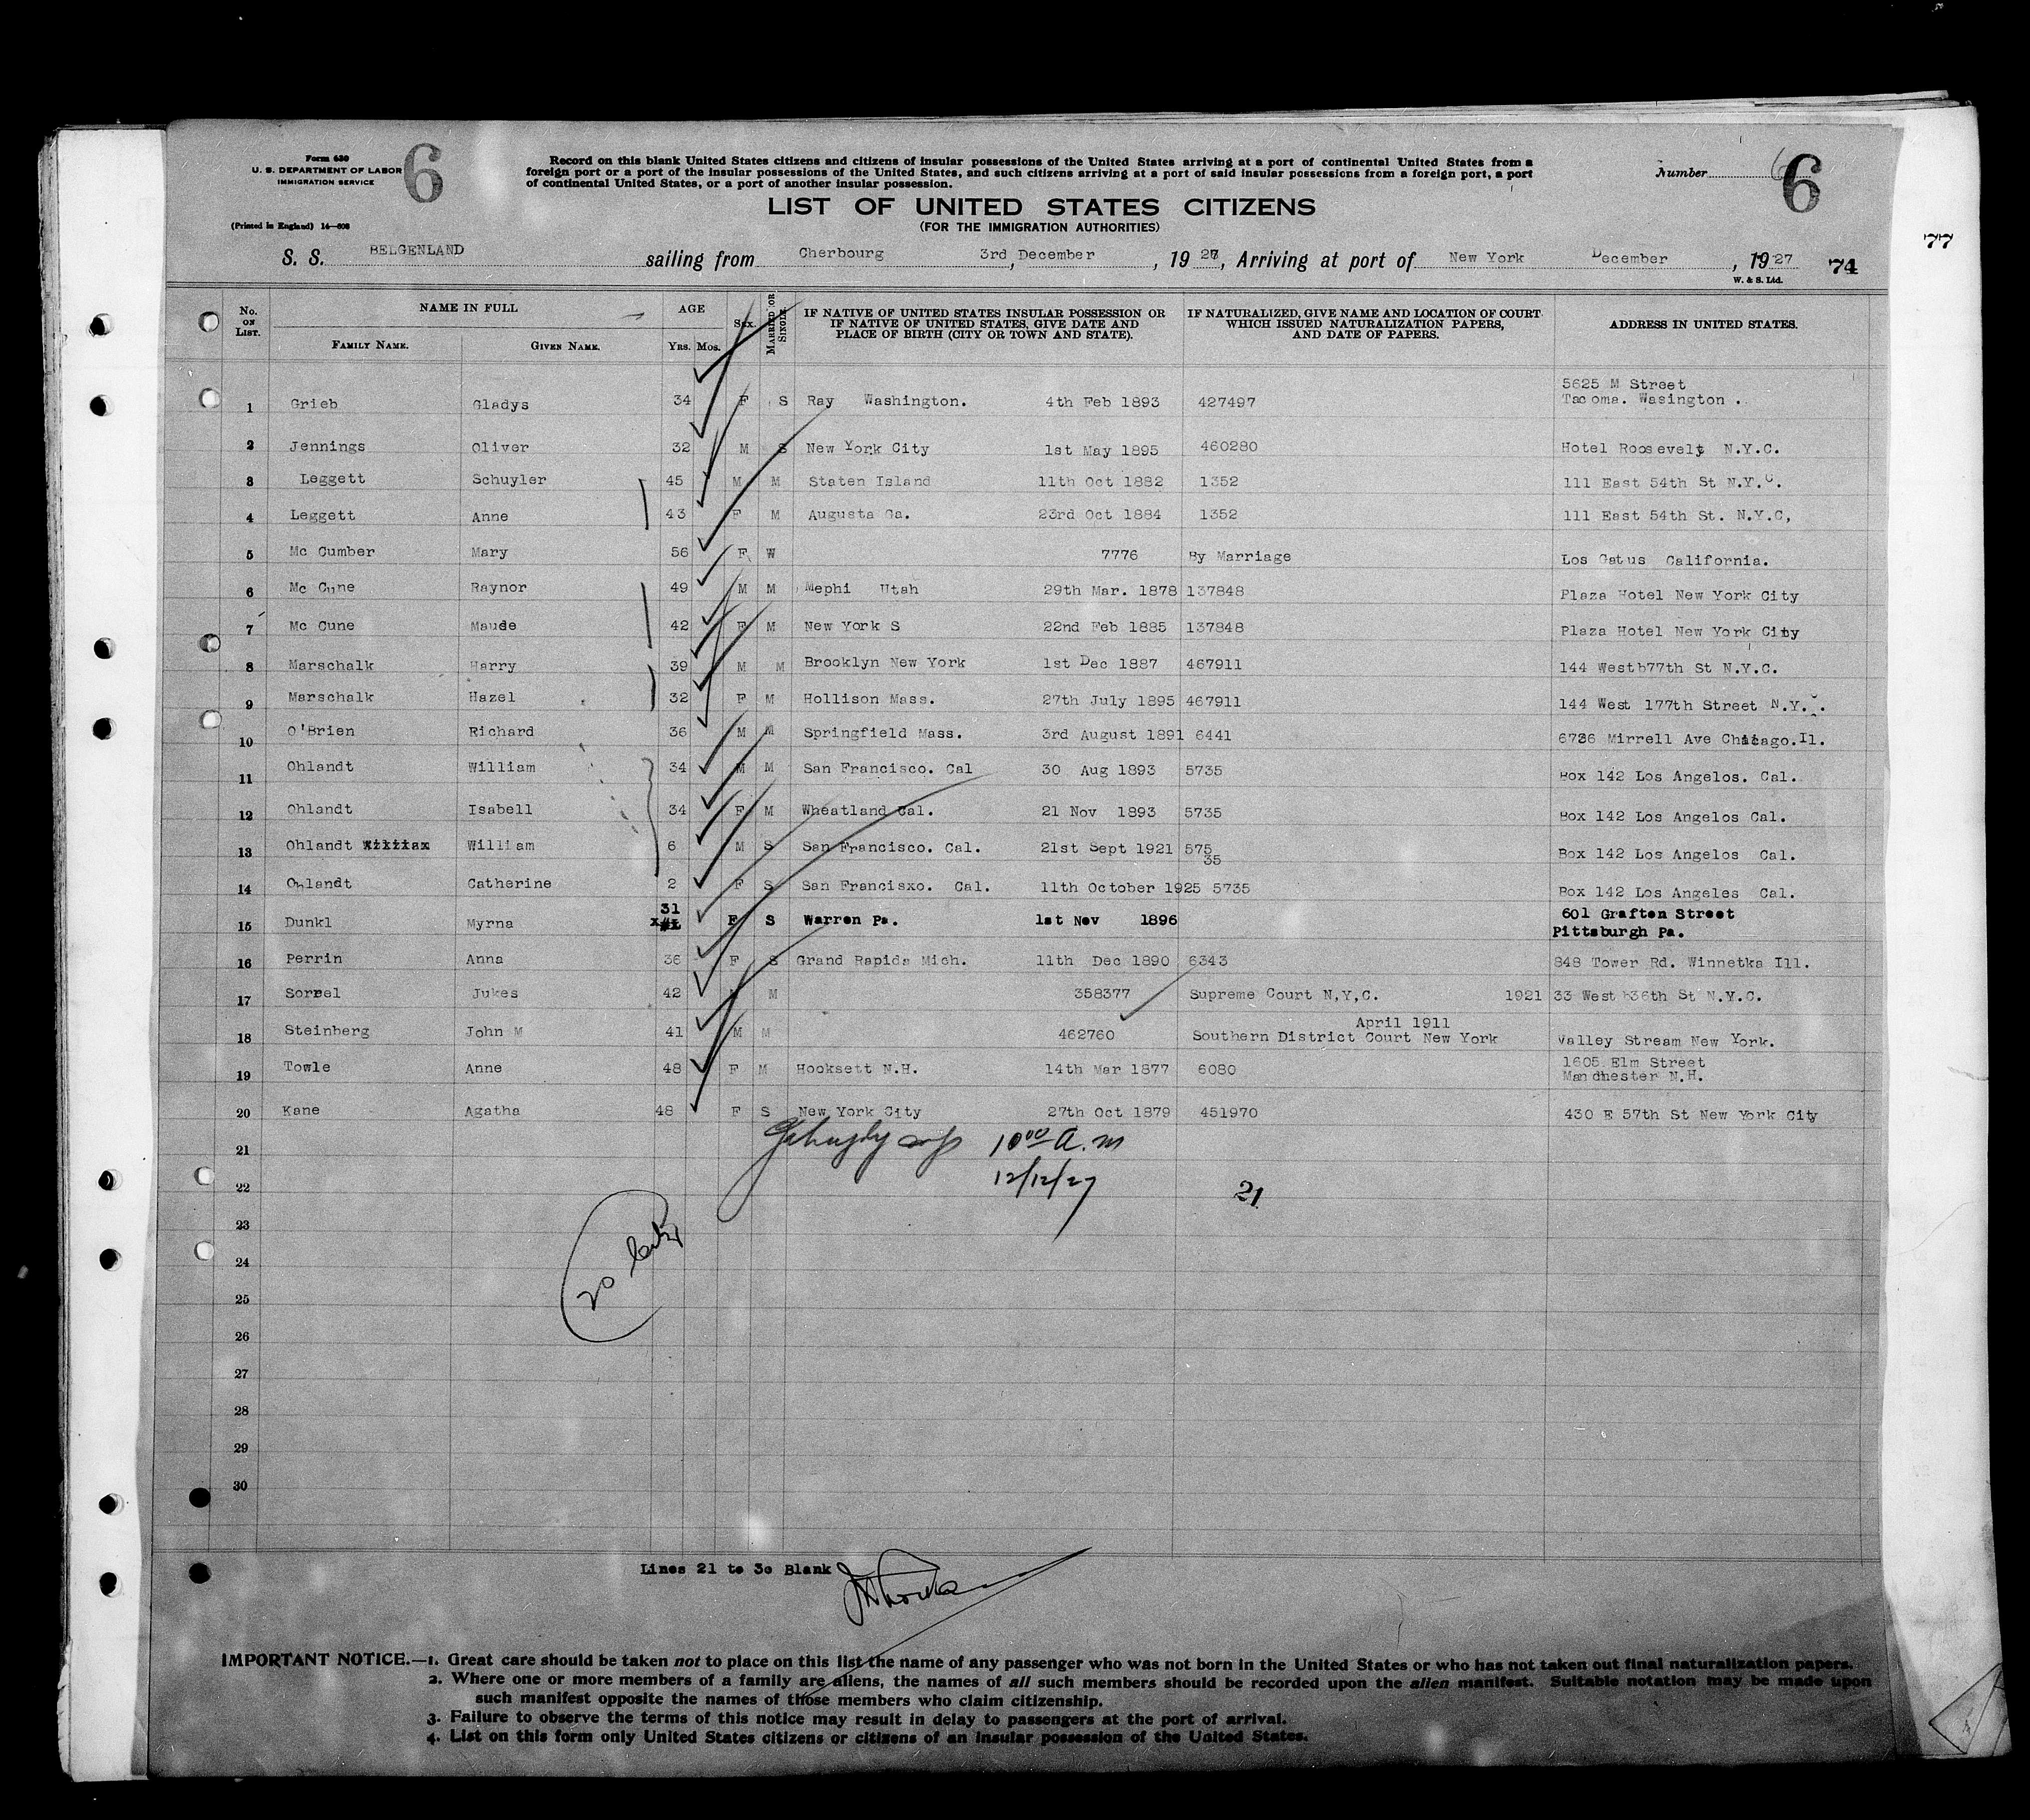 Form 630
U. S. DEPARTMENT OF LABOR
IMMIGRATION SERVICE
6
(Printed in England) 14—608
Record on this blank United States citizens and citizens of insular possessions of the United States arriving at a port of continental United States from a
foreign port or a port of the insular possessions of the United States, and such citizens arriving at a port of said insular possessions from a foreign port, a port
of continental United States, or a port of another insular possession.
Number 6 6
LIST OF UNITED STATES CITIZENS
(FOR THE IMMIGRATION AUTHORITIES)
77
S. S. BELGENLAND sailing from Cherbourg 3rd, December, 1927, Arriving at port of New York December, 1927 74
W. & S. Ltd.
No. ON LIST. NAME IN FULL AGE SEX. MARRIED OR SINGLE. IF NATIVE OF UNITED STATES INSULAR POSSESSION OR IF NATIVE OF UNITED STATES, GIVE DATE AND PLACE OF BIRTH (CITY OR TOWN AND STATE). IF NATURALIZED, GIVE NAME AND LOCATION OF COURT WHICH ISSUED NATURALIZATION PAPERS, AND DATE OF PAPERS. ADDRESS IN UNITED STATES.
FAMILY NAME. GIVEN NAME. YRS. MOS.
5625 M Street
1 Grieb Gladys 34 F S Ray Washington. 4th Feb 1893 427497 Tacoma. Wasington .
2 Jennings Oliver 32 M S New York City 1st May 1895 460280 Hotel Roosevelt N.Y.C.
3 Leggett Schuyler 45 M M Staten Island 11th Oct 1882 1352 111 East 54th St N.Y.C.
4 Leggett Anne 43 F M Augusta Ga. 23rd Oct 1884 1352 111 East 54th St. N.Y.C,
5 Mc Cumber Mary 56 F W 7776 By Marriage Los Gatus California.
6 Mc Cune Raynor 49 M M Mephi Utah 29th Mar. 1878 137848 Plaza Hotel New York City
7 Mc Cune Maude 42 F M New York S 22nd Feb 1885 137848 Plaza Hotel New York City
8 Marschalk Harry 39 M M Brooklyn New York 1st Dec 1887 467911 144 Westb77th St N.Y.C.
9 Marschalk Hazel 32 F M Hollison Mass. 27th July 1895 467911 144 West 177th Street N.Y.
10 O'Brien Richard 36 M M Springfield Mass. 3rd August 1891 6441 6736 Mirrell Ave Chicago.Il.
11 Ohlandt William 34 M M San Francisco. Cal 30 Aug 1893 5735 Box 142 Los Angelos. Cal.
12 Ohlandt Isabell 34 F M Wheatland Cal. 21 Nov 1893 5735 Box 142 Los Angelos Cal.
13 Ohlandt William 6 M S San Francisco. Cal. 21st Sept 1921 575 Box 142 Los Angelos Cal.
35
14 Ohlandt Catherine 2 F S San Francisxo. Cal. 11th October 1925 5735 Box 142 Los Angeles Cal.
31 601 Grafton Street
15 Dunkl Myrna F S Warren Pa. 1st Nov 1896 Pittsburgh Pa.
16 Perrin Anna 36 F S Grand Rapids Mich. 11th Dec 1890 6343 848 Tower Rd. Winnetka Ill.
17 Sorrel Jukes 42 M 358377 Supreme Court N,Y,C. 1921 33 West b36th St N.Y.C.
April 1911
18 Steinberg John M 41 M M 462760 Southern District Court New York Valley Stream New York.
1605 Elm Street
19 Towle Anne 48 F M Hooksett N.H. 14th Mar 1877 6080 Mandhester N.H.
20 Kane Agatha 48 F S New York City 27th Oct 1879 451970 430 E 57th St New York City
21 10 00 A.M
22 12/12/27 21
23
24
25 20
26
27
28
29
30
Lines 21 to 30 Blank
IMPORTANT NOTICE.—1. Great care should be taken not to place on this list the name of any passenger who was not born in the United States or who has not taken out final naturalization papers.
2. Where one or more members of a family are aliens, the names of all such members should be recorded upon the alien manifest. Suitable notation may be made upon
such manifest opposite the names of those members who claim citizenship.
3. Failure to observe the terms of this notice may result in delay to passengers at the port of arrival.
4. List on this form only United States citizens or citizens of an insular possession of the United States.